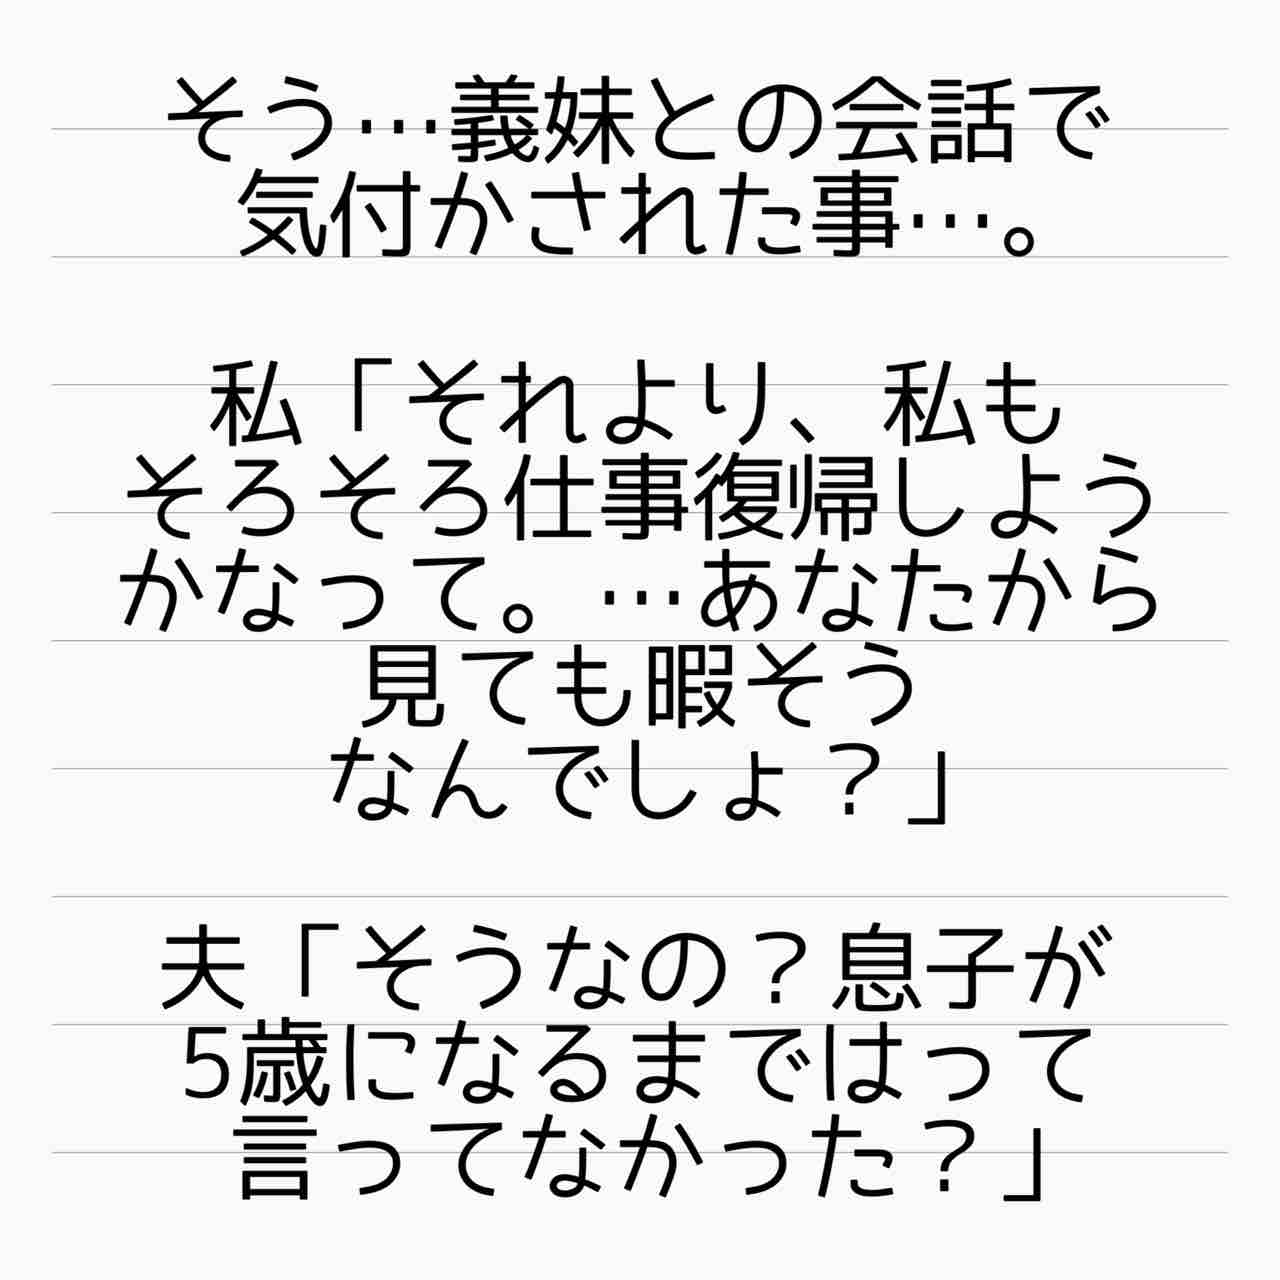 そう…義妹との会話で
気付かされた事…。
私「それより、私も
そろそろ仕事復帰しよう
かなって。…あなたから
見ても暇そう
なんでしょ？」
夫「そうなの？息子が
5歳になるまではって
言ってなかった？」